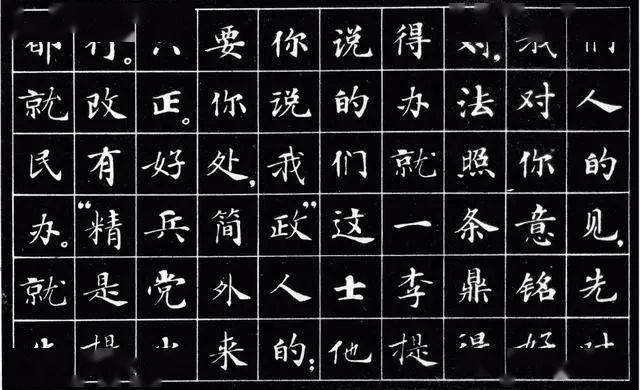 都行。只要你说得对,我们
就改正。你说的办法对人
民有好处,我们就照你的
办。“精兵简政”这一条意见,
就是党外人士李鼎铭先
提出来的;他提得好对